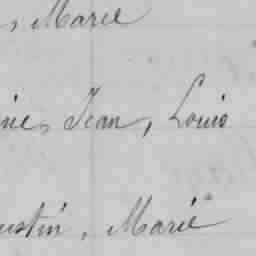 , Marie
ine, Jean, Louis
ustin, Marie